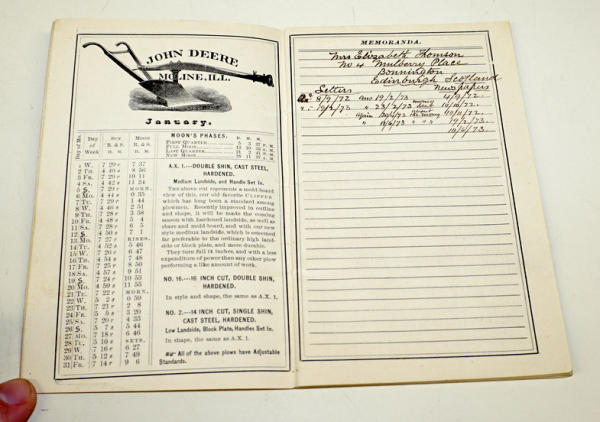 JOHN DEERE,
MOLINE, ILL.
January.
Day of Mo.
Day of Week
SUN R. & S.
MOON R. & S.
H. M.
H. M.
1 W. 7 29 r 7 37
2 TH. 4 40 s 8 56
3 FR. 7 29 r 10 11
4 SA. 4 42 s 11 24
5 S. 7 29 r MORN.
6 MO. 4 44 s 0 35
7 TU. 7 29 r 1 44
8 W. 4 46 s 2 51
9 TH. 7 28 r 3 58
10 FR. 4 48 s 5 4
11 SA. 7 28 r 6 5
12 S. 4 50 s 7 1
13 MO. 7 27 r RISES.
14 TU. 4 52 s 5 46
15 W. 7 26 r 6 47
16 TH. 4 54 s 7 48
17 FR. 7 25 r 8 50
18 SA. 4 57 s 9 51
19 S. 7 24 r 10 53
20 MO. 4 59 s 11 55
21 TU. 7 22 r MORN.
22 W. 5 2 s 0 59
23 TH. 7 21 r 2 8
24 FR. 5 5 s 3 20
25 SA. 7 20 r 4 33
26 S. 5 7 s 5 44
27 MO. 7 18 r 6 46
28 TU. 5 10 s SETS.
29 W. 7 16 r 6 27
30 TH. 5 12 s 7 49
31 FR. 7 14 r 9 6
MOON'S PHASES.
D. H. M.
FIRST QUARTER
FULL MOON
LAST QUARTER
NEW MOON
A.X. 1.—DOUBLE SHIN, CAST STEEL,
HARDENED.
Medium Landside, and Handle Set In.
The above cut represents a mold-board
view of this, our old favorite CLIPPER
which has long been a standard among
plowmen. Recently improved in outline
and shape, it will be made the coming
season with hardened landside, as well as
share and mold-board, and with our new
style medium landside, which is esteemed
far preferable to the ordinary high land-
side or block plate, and more durable.
They turn full 14 inches, and with a less
expenditure of power than any other plow
performing a like amount of work.
NO. 16.—16 INCH CUT, DOUBLE SHIN,
HARDENED.
In style and shape, the same as A.X. 1.
NO. 2.—14 INCH CUT, SINGLE SHIN,
CAST STEEL, HARDENED.
Low Landside, Block Plate, Handles Set In.
In shape, the same as A.X. 1.
All of the above plows have Adjustable
Standards.
MEMORANDA.
Mrs Elizabeth Thomson
No 4 Mulberry Place
Bonnington
Edinburgh Scotland
Letters Newspapers
8/9/72 ans 19/2/73 4/9/72
19/2/73 " 23/2/73 money sent 10/10/72
again 19/2/73
" "